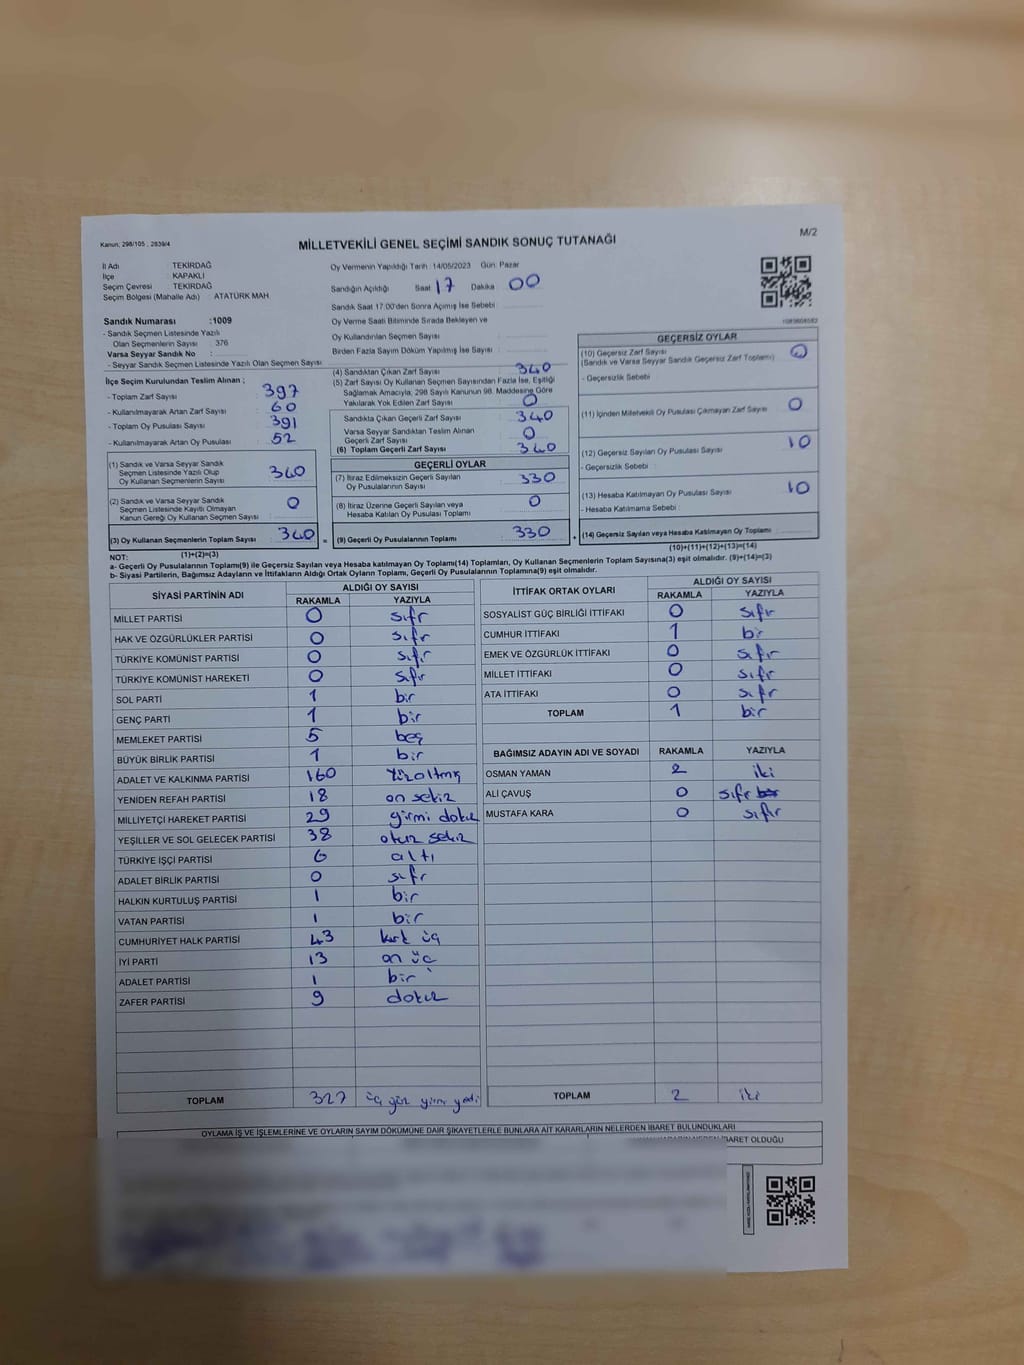 Kanun: 298/105 , 2839/4
M/2
MİLLETVEKİLİ GENEL SEÇİMİ SANDIK SONUÇ TUTANAĞI
İl Adı : TEKİRDAĞ
İlçe : KAPAKLI
Seçim Çevresi : TEKİRDAĞ
Seçim Bölgesi (Mahalle Adı) : ATATÜRK MAH
Oy Vermenin Yapıldığı Tarih :14/05/2023 Gün: Pazar
Sandığın Açıldığı Saat 17 Dakika 00
Sandık Saat 17.00'den Sonra Açılmış İse Sebebi :
Oy Verme Saati Bitiminde Sırada Bekleyen ve
Oy Kullandırılan Seçmen Sayısı :
Birden Fazla Sayım Döküm Yapılmış İse Sayısı :
Sandık Numarası :1009
- Sandık Seçmen Listesinde Yazılı
Olan Seçmenlerin Sayısı : 376
Varsa Seyyar Sandık No :
- Seyyar Sandık Seçmen Listesinde Yazılı Olan Seçmen Sayısı
İlçe Seçim Kurulundan Teslim Alınan ;
- Toplam Zarf Sayısı : 397
- Kullanılmayarak Artan Zarf Sayısı : 60
- Toplam Oy Pusulası Sayısı : 391
- Kullanılmayarak Artan Oy Pusulası : 52
(1) Sandık ve Varsa Seyyar Sandık
Seçmen Listesinde Yazılı Olup
Oy Kullanan Seçmenlerin Sayısı : 340
(2) Sandık ve Varsa Seyyar Sandık
Seçmen Listesinde Kayıtlı Olmayan
Kanun Gereği Oy Kullanan Seçmen Sayısı : 0
(3) Oy Kullanan Seçmenlerin Toplam Sayısı : 340
(4) Sandıktan Çıkan Zarf Sayısı : 340
(5) Zarf Sayısı Oy Kullanan Seçmen Sayısından Fazla İse, Eşitliği
Sağlamak Amacıyla, 298 Sayılı Kanunun 98. Maddesine Göre
Yakılarak Yok Edilen Zarf Sayısı : 0
Sandıkta Çıkan Geçerli Zarf Sayısı : 340
Varsa Seyyar Sandıktan Teslim Alınan
Geçerli Zarf Sayısı : 0
(6) Toplam Geçerli Zarf Sayısı : 340
GEÇERLİ OYLAR
(7) İtiraz Edilmeksizin Geçerli Sayılan
Oy Pusulalarının Sayısı : 330
(8) İtiraz Üzerine Geçerli Sayılan veya
Hesaba Katılan Oy Pusulası Toplamı : 0
= (9) Geçerli Oy Pusulalarının Toplamı : 330
GEÇERSİZ OYLAR
(10) Geçersiz Zarf Sayısı
(Sandık ve Varsa Seyyar Sandık Geçersiz Zarf Toplamı) : 0
- Geçersizlik Sebebi :
(11) İçinden Milletvekili Oy Pusulası Çıkmayan Zarf Sayısı : 0
(12) Geçersiz Sayılan Oy Pusulası Sayısı : 10
- Geçersizlik Sebebi :
(13) Hesaba Katılmayan Oy Pusulası Sayısı : 10
- Hesaba Katılmama Sebebi :
+ (14) Geçersiz Sayılan veya Hesaba Katılmayan Oy Toplamı :
NOT: (1)+(2)=(3) (10)+(11)+(12)+(13)=(14)
a- Geçerli Oy Pusulalarının Toplamı(9) ile Geçersiz Sayılan veya Hesaba katılmayan Oy Toplamı(14) Toplamları, Oy Kullanan Seçmenlerin Toplam Sayısına(3) eşit olmalıdır. (9)+(14)=(3)
b- Siyasi Partilerin, Bağımsız Adayların ve İttifakların Aldığı Ortak Oyların Toplamı, Geçerli Oy Pusulalarının Toplamına(9) eşit olmalıdır.
SİYASİ PARTİNİN ADI ALDIĞI OY SAYISI
RAKAMLA YAZIYLA
MİLLET PARTİSİ 0 sıfır
HAK VE ÖZGÜRLÜKLER PARTİSİ 0 sıfır
TÜRKİYE KOMÜNİST PARTİSİ 0 sıfır
TÜRKİYE KOMÜNİST HAREKETİ 0 sıfır
SOL PARTİ 1 bir
GENÇ PARTİ 1 bir
MEMLEKET PARTİSİ 5 beş
BÜYÜK BİRLİK PARTİSİ 1 bir
ADALET VE KALKINMA PARTİSİ 160 yüzaltmış
YENİDEN REFAH PARTİSİ 18 on sekiz
MİLLİYETÇİ HAREKET PARTİSİ 29 yirmi dokuz
YEŞİLLER VE SOL GELECEK PARTİSİ 38 otuz sekiz
TÜRKİYE İŞÇİ PARTİSİ 6 altı
ADALET BİRLİK PARTİSİ 0 sıfır
HALKIN KURTULUŞ PARTİSİ 1 bir
VATAN PARTİSİ 1 bir
CUMHURİYET HALK PARTİSİ 43 kırk üç
İYİ PARTİ 13 on üç
ADALET PARTİSİ 1 bir
ZAFER PARTİSİ 9 dokuz
TOPLAM 327 üç yüz yirmi yedi
İTTİFAK ORTAK OYLARI ALDIĞI OY SAYISI
RAKAMLA YAZIYLA
SOSYALİST GÜÇ BİRLİĞİ İTTİFAKI 0 sıfır
CUMHUR İTTİFAKI 1 bir
EMEK VE ÖZGÜRLÜK İTTİFAKI 0 sıfır
MİLLET İTTİFAKI 0 sıfır
ATA İTTİFAKI 0 sıfır
TOPLAM 1 bir
BAĞIMSIZ ADAYIN ADI VE SOYADI RAKAMLA YAZIYLA
OSMAN YAMAN 2 iki
ALİ ÇAVUŞ 0 sıfır
MUSTAFA KARA 0 sıfır
TOPLAM 2 iki
OYLAMA İŞ VE İŞLEMLERİNE VE OYLARIN SAYIM DÖKÜMÜNE DAİR ŞİKAYETLERLE BUNLARA AİT KARARLARIN NELERDEN İBARET BULUNDUKLARI
İBARET OLDUĞU